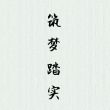 筑梦踏实